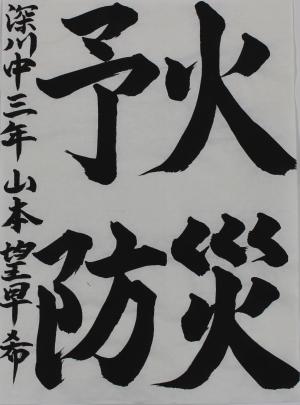 火災
予防
深川中三年山本望早希